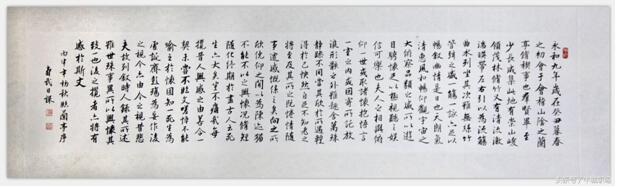 永和九年歲在癸丑暮春
之初會于會稽山陰之蘭
亭脩禊事也群賢畢至
少長咸集此地有崇山峻
領茂林脩竹又有清流激
湍暎帶左右引以為流觴
曲水列坐其次雖無絲竹
管絃之盛一觴一詠亦足以
暢敘幽情是日也天朗氣
清惠風和暢仰觀宇宙之
大俯察品類之盛所以遊
目騁懷足以極視聽之娛
信可樂也夫人之相與俯
仰一世或取諸懷抱悟言
一室之內或因寄所託放
浪形骸之外雖趣舍萬殊
靜躁不同當其欣於所遇暫
得於己快然自足不知老之
將至及其所之既惓情隨
事遷感慨係之矣向之所
欣俛仰之間以為陳迹猶
不能不以之興懷況脩短
隨化終期於盡古人云死
生亦大矣豈不痛哉每
攬昔人興感之由若合一
契未嘗不臨文嗟悼不能
喻之於懷固知一死生為
虛誕齊彭殤為妄作後
之視今亦由今之視昔悲
夫故列敘時人錄其所述
雖世殊事異所以興懷其
致一也後之攬者亦將有
感於斯文
丙申年初秋臨蘭亭序